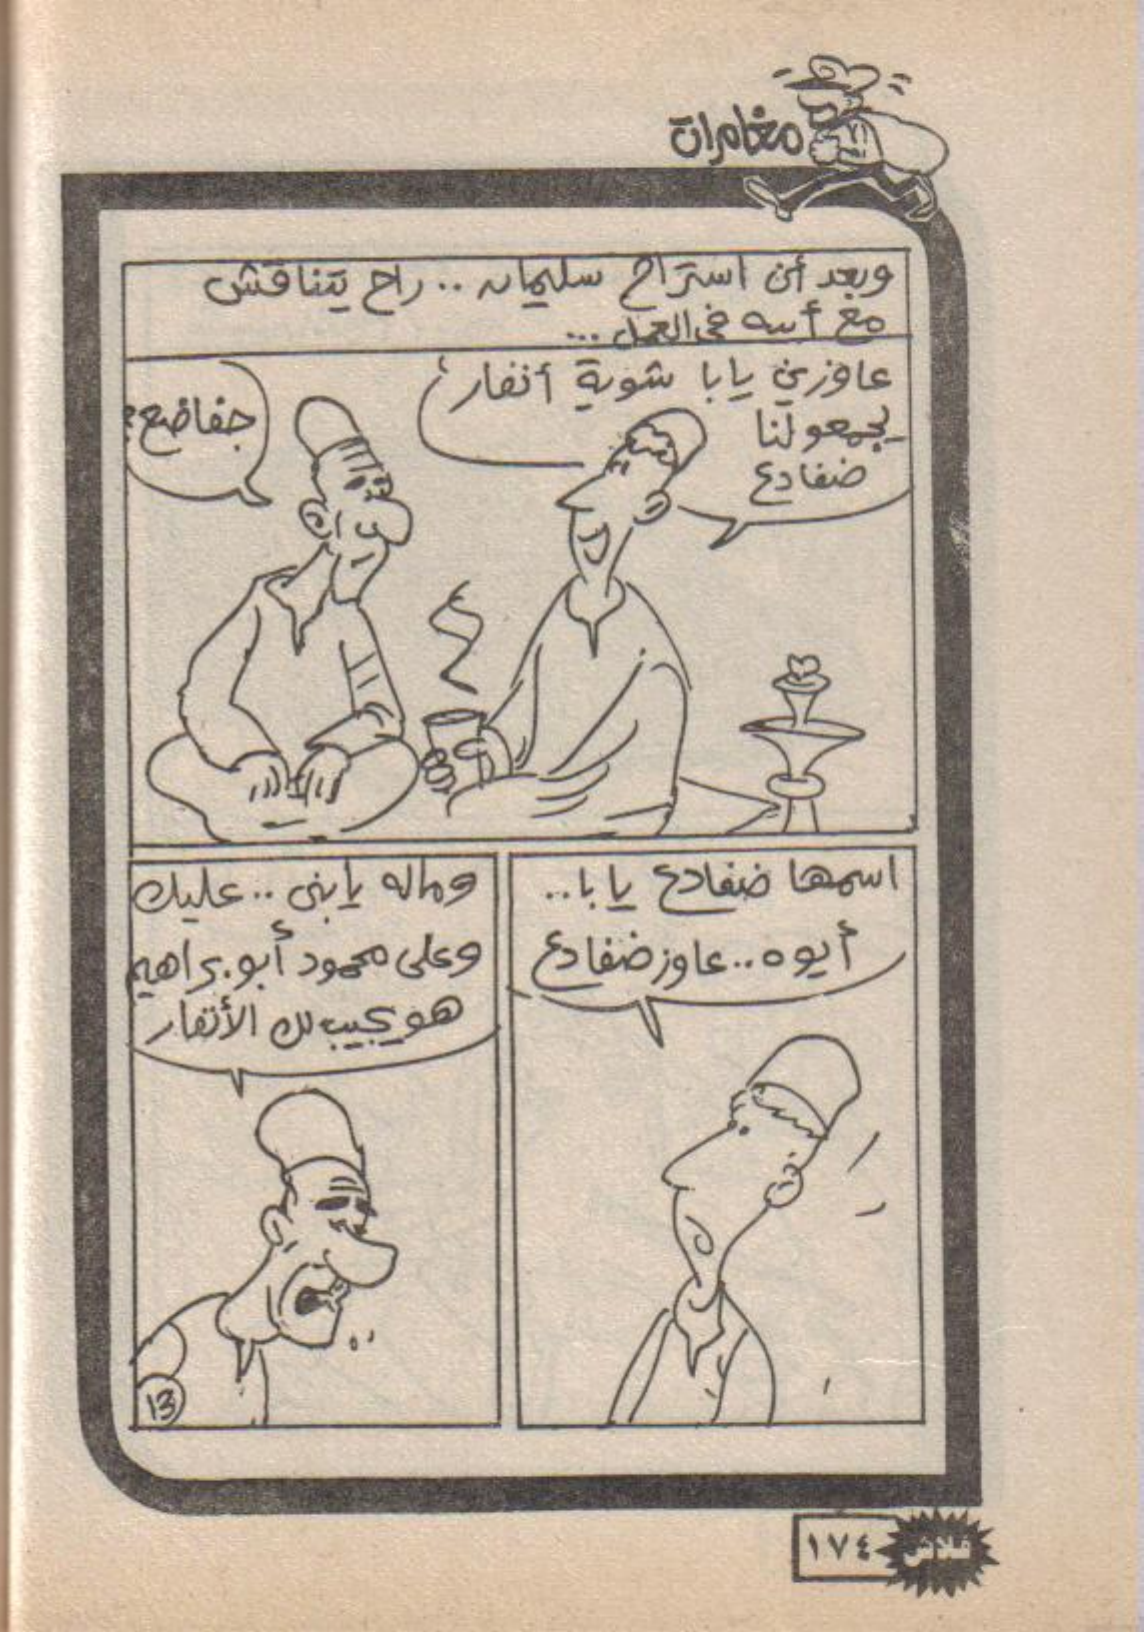 مغامرات
وبعد أن استراح سليمان .. راح يتناقش
مع أبيه في العمل ...
عاوزين يابا شوية أنفار
يجمعولنا
ضفادع
جفاضع؟
اسمها ضفادع يابا..
أيوه.. عاوز ضفادع
وماله يابنى .. عليك
وعلى محمود أبو براهيم
هو يجيب لك الأنفار
13
١٧٤
فلاش